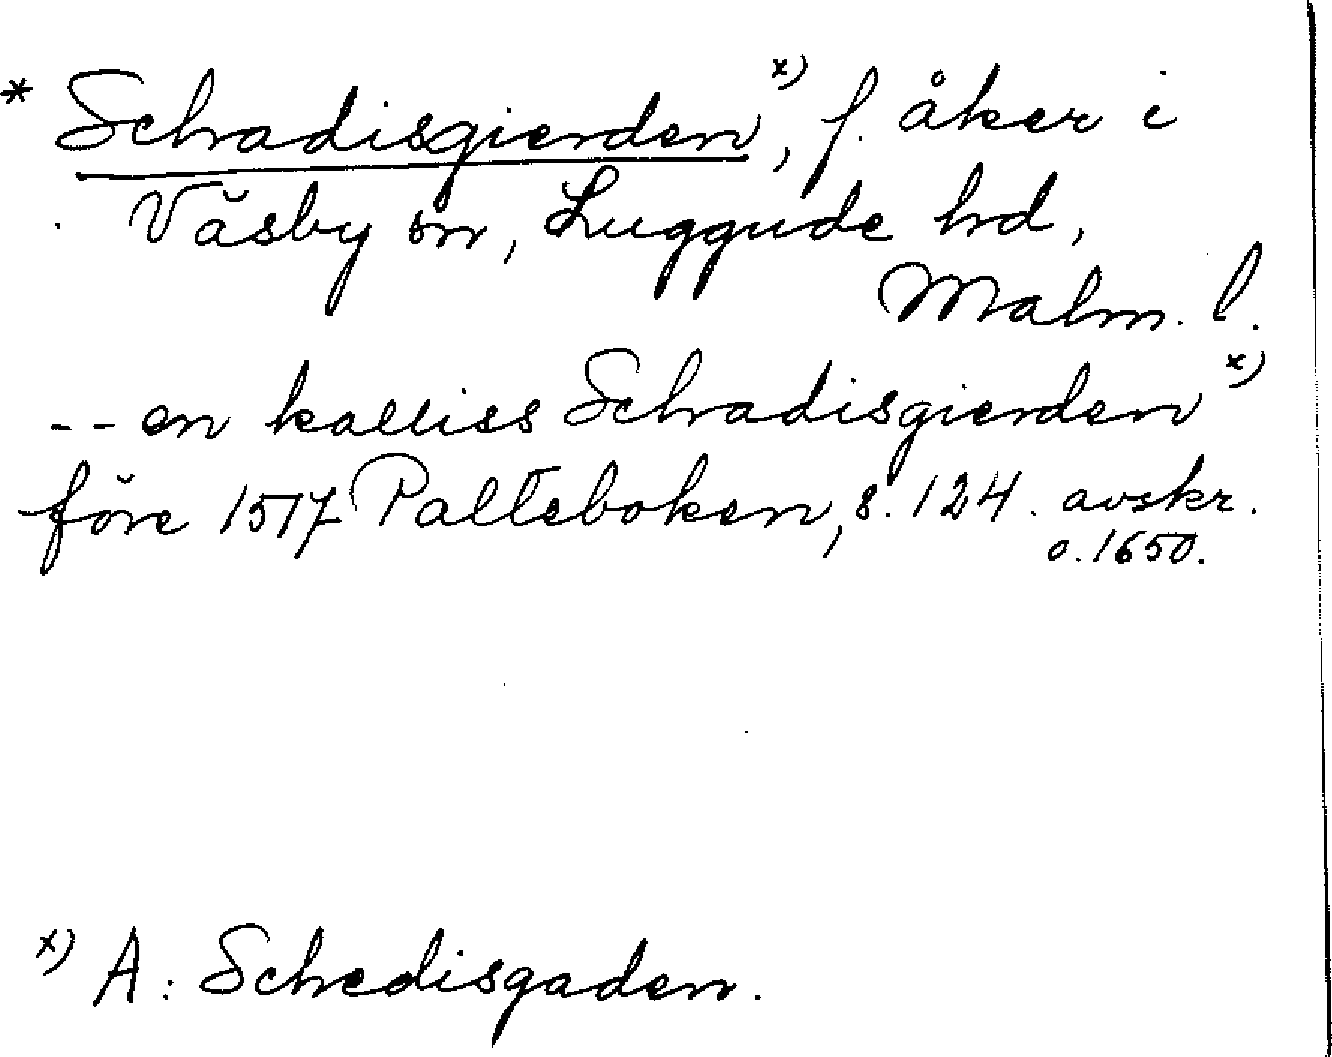 * Schradisgierden x), f. åker i
Väsby sn, Luggude hd,
Malm. l.
-- en kalliss Schradisgierden x)
före 1517 Palteboken, s. 124. avskr.
o. 1650.
x) A: Schedisgaden.